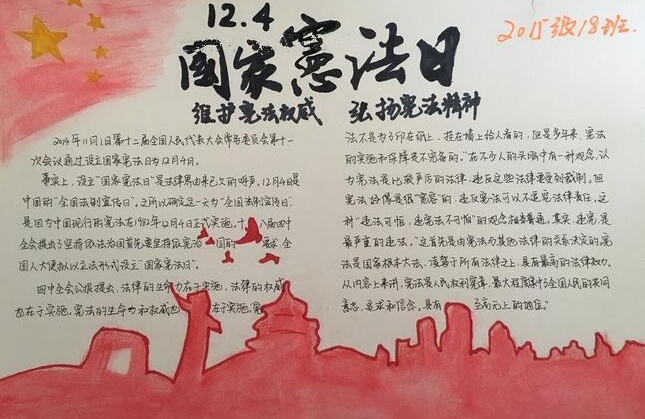 12.4
国家宪法日
2015级18班.
维护宪法权威 弘扬宪法精神
2014年11月1日第十二届全国人民代表大会常务委员会第十一
次会议通过设立国家宪法日为12月4日。
事实上，设立"国家宪法日"是法律界由来已久的呼声，12月4日是
中国的"全国法制宣传日"。之所以确定这一天为"全国法制宣传日"，
是因为中国现行的宪法在1982年12月4日正式实施。十八届四中
全会提出，坚持依法治国首先要坚持依宪治国的要求，全
国人大便拟以立法形式设立"国家宪法日"。
四中全会公报提出，法律的生命力在于实施，法律的权威
也在于实施。宪法的生命力和权威也在于实施，宪
法不是为了印在纸上、挂在墙上给人看的，但是多年来，宪法
的实施和保障是不完备的。"在不少人的头脑中有一种观念，认
为宪法是比较严厉的法律，违反这些法律要受到裁制。但
宪法好像是很"宽容"的，违反宪法可以不追究法律责任。这
种"违法可怕，违宪法不可怕"的观念相当普遍。其实，违宪是
最严重的违法。"这首先是由宪法与其他法律的关系决定的。宪
法是国家根本大法，凌驾于所有法律之上，具有最高的法律效力。
从内容上来讲，宪法是人民权利宪章，最大程度集中了全国人民的共同
意志、追求和信念。具有至高无上的地位。"